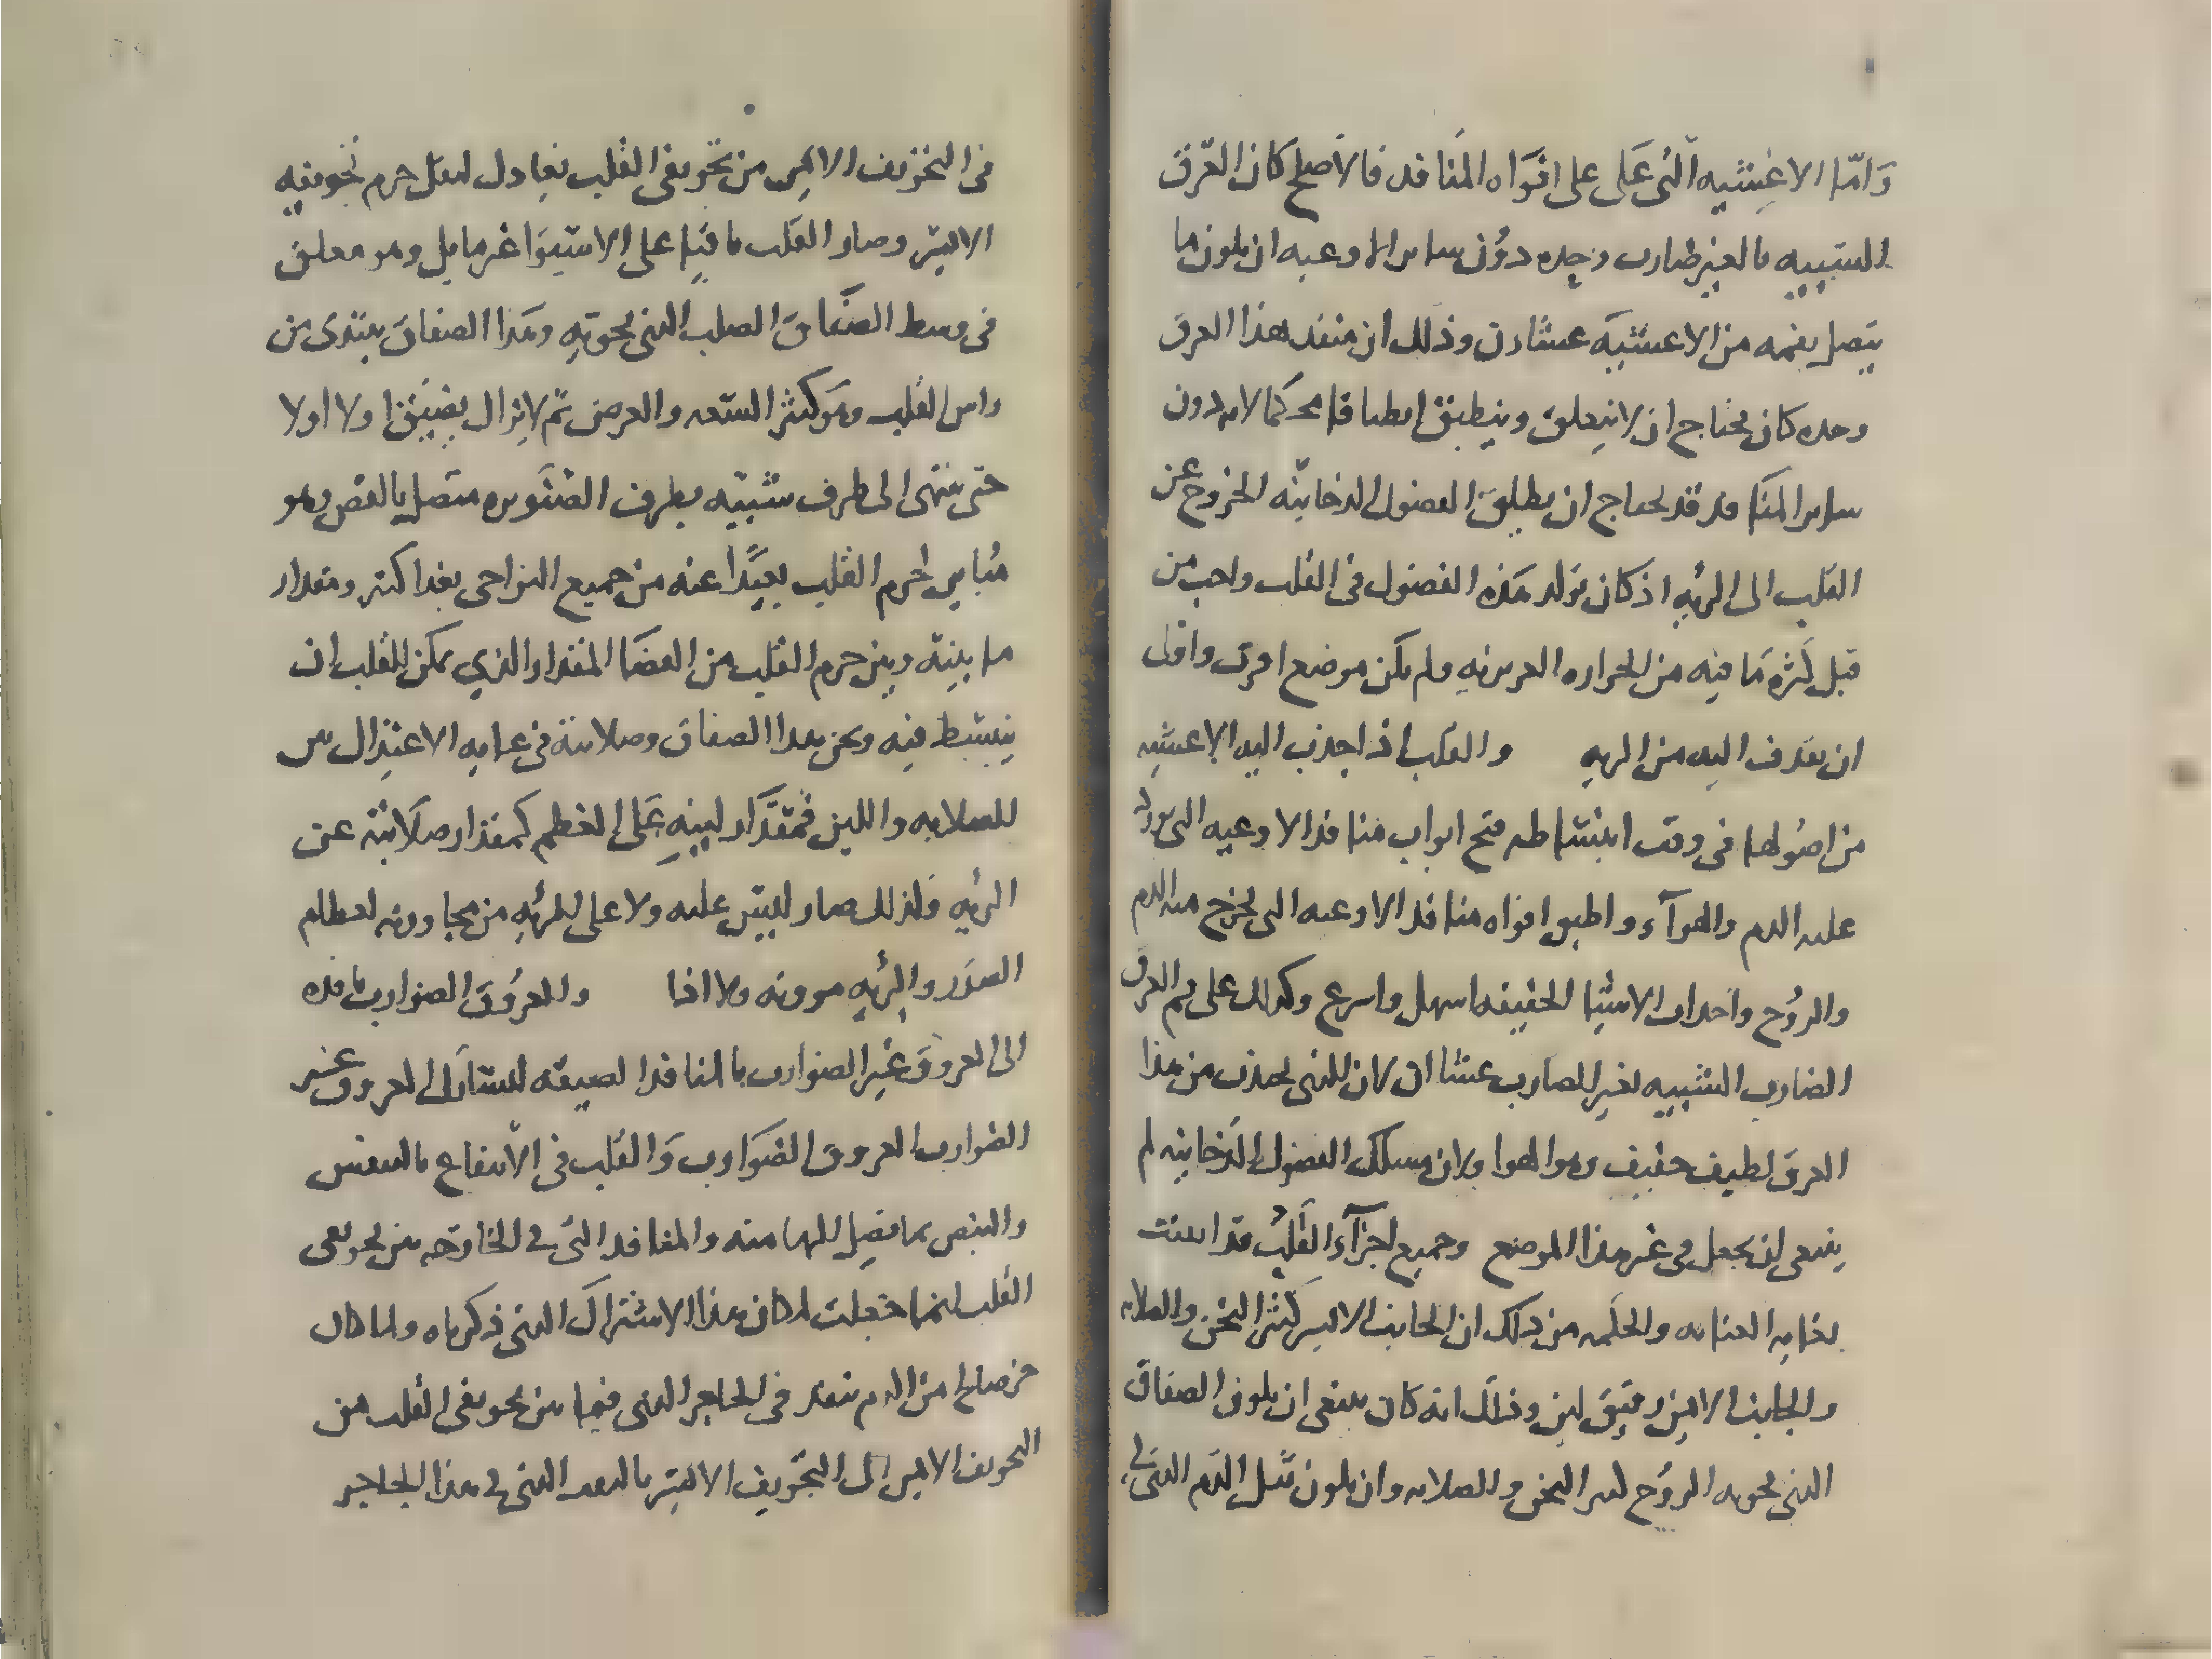 وَامّا الاغشيه الّتى عَلى على افوَاه المَنافد فالاصلح كان العرق
الشبيه بالغير ضارب وحده دوُن ساير الاوعيه ان يكون ما
يتصل بفمه من الاغشيه غشاان وذلك ان منفد هذا العرق
وحده كان يحتاج ان لا ينغلق وينطبق انطباقا محكما لانه دون
ساير المنافد قد يحتاج ان يطلق الفضول الدخانيّه الخروج عن
القلب الى الريه اذ كان تولد هَذه الفضول فى القلب واجب من
قبل كثره مَا فيه من الحراره الغريزيه ولم يكن موضع احرى واولى
ان تقدف اليه من الريه والقلب اذا جذب اليه الاغشيه
من اصُولها فى وقت انبساطه فتح ابواب منافد الاوعيه التى يورد
عليه الدم والهوآء واطبق افواه منافد الاوعيه التى يخرج منه الدم
والروُح واجداب الاشيا الخفيفه اسهل واسرع وكذلك على فم العرق
الضارب الشبيه بغير الضارب غشاان لان الذى يجذب من هذا
العرق لطيف خفيف وهو الهوا ولان مسلك الفضول الدّخانيه لم
ينبغى ان يجعل فى غير هذا الموضع وجميع اجزآء القلب قد اتقنت
بغايه العنايه والحكمه من ذلك ان الجانب الايسر كثير الثخن والصلابه
والجانب الايمن رقيق لين وذلك انه كان ينبغى ان يكون الصفاق
الذى يحويه الروُح كثير الثخن والصلابه وان يكون ثقل الدّم الذى فى
فى التجويف الايمن من تجويفى القلب يعادل لثقل جرم تجويفيه
الايسر وصار القلب باقيا على الاستوا غير مايل وهو معلق
فى وسط الصفاق الصلب الذى يحويه وهذا الصفاق يبتدى من
راس القلب وهو كثير السعه والعرض ثم لا يزال يضيق اولا اولا
حتى ينتهى الى طرف شبيه بطرف الصنوبره متصل بالقص وهو
مُباين لجرم القلب بعيدًا عنه من جميع النواحى بعدا كثير ومقدار
ما بينه وبين جرم القلب من الفضَا المقدار الذي يمكن القلب ان
ينبسط فيه وثخن هدا الصفاق وصلابته فى غايه الاعتدال بين
الصلابه واللين فمقدَار لينهِ عَلى العظم كمقدار صلابته عن
الريه فلذلك صار ليس عليه ولا على الرئه من مجاورته لعظام
الصدر والريه موونه ولا اذا والعروُق الضوارب نافده
الى العروق غير الضوارب بالمنافد الضيقه لتشارك العروق غير
الضوارب العروق الضوارب وَالقلب فى الانتفاع بالتنفس
والنبض بما يصل اليها منه والمنافد التى فى الخارجه من تجويفى
القلب انما جعلت لمكان هذا الاشتراك الذى ذكرناه ولما كان
من الدم ينفد فى الحاجز الذى فيما بين تجويفى القلب من
التجويف الايمن الى التجويف الايسر بالثقب الذى فى هذا الحاجز